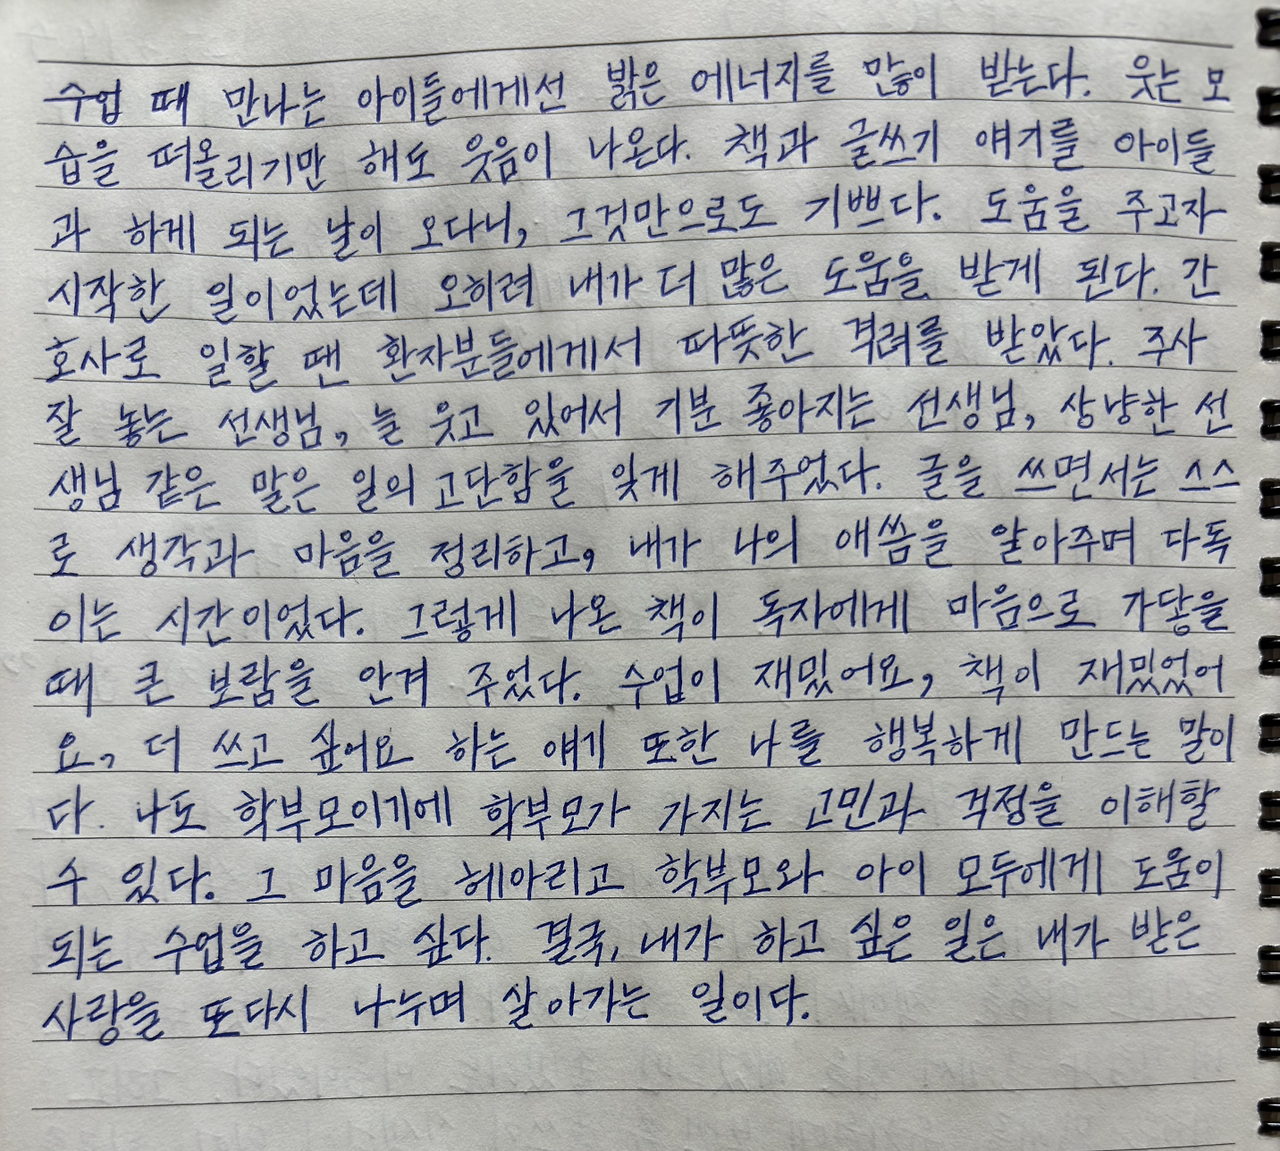 수업 때 만나는 아이들에게선 밝은 에너지를 많이 받는다. 웃는 모
습을 떠올리기만 해도 웃음이 나온다. 책과 글쓰기 얘기를 아이들
과 하게 되는 날이 오다니, 그것만으로도 기쁘다. 도움을 주고자
시작한 일이었는데 오히려 내가 더 많은 도움을 받게 된다. 간
호사로 일할 땐 환자분들에게서 따뜻한 격려를 받았다. 주사
잘 놓는 선생님, 늘 웃고 있어서 기분 좋아지는 선생님, 상냥한 선
생님 같은 말은 일의 고단함을 잊게 해주었다. 글을 쓰면서는 스스
로 생각과 마음을 정리하고, 내가 나의 애씀을 알아주며 다독
이는 시간이었다. 그렇게 나온 책이 독자에게 마음으로 가닿을
때 큰 보람을 안겨 주었다. 수업이 재밌어요, 책이 재밌었어
요, 더 쓰고 싶어요 하는 얘기 또한 나를 행복하게 만드는 말이
다. 나도 학부모이기에 학부모가 가지는 고민과 걱정을 이해할
수 있다. 그 마음을 헤아리고 학부모와 아이 모두에게 도움이
되는 수업을 하고 싶다. 결국, 내가 하고 싶은 일은 내가 받은
사랑을 또다시 나누며 살아가는 일이다.